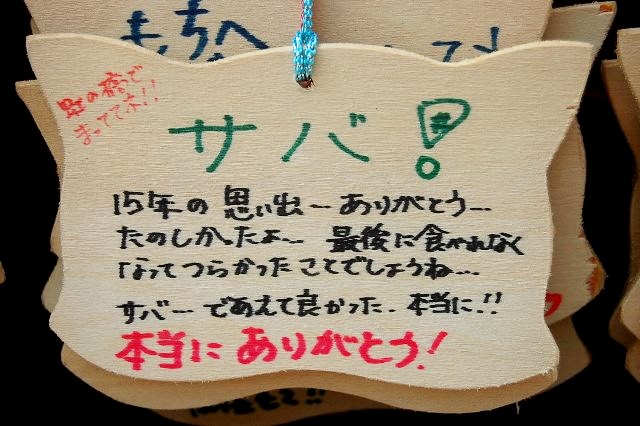 もちへ
虹の橋で
まっててネ!!
サバ!
15年の思い出…ありがとう…
たのしかったよ… 最後に食べれなく
なってつらかったことでしょうね…
サバーであえて良かった.本当に!!
本当にありがとう!